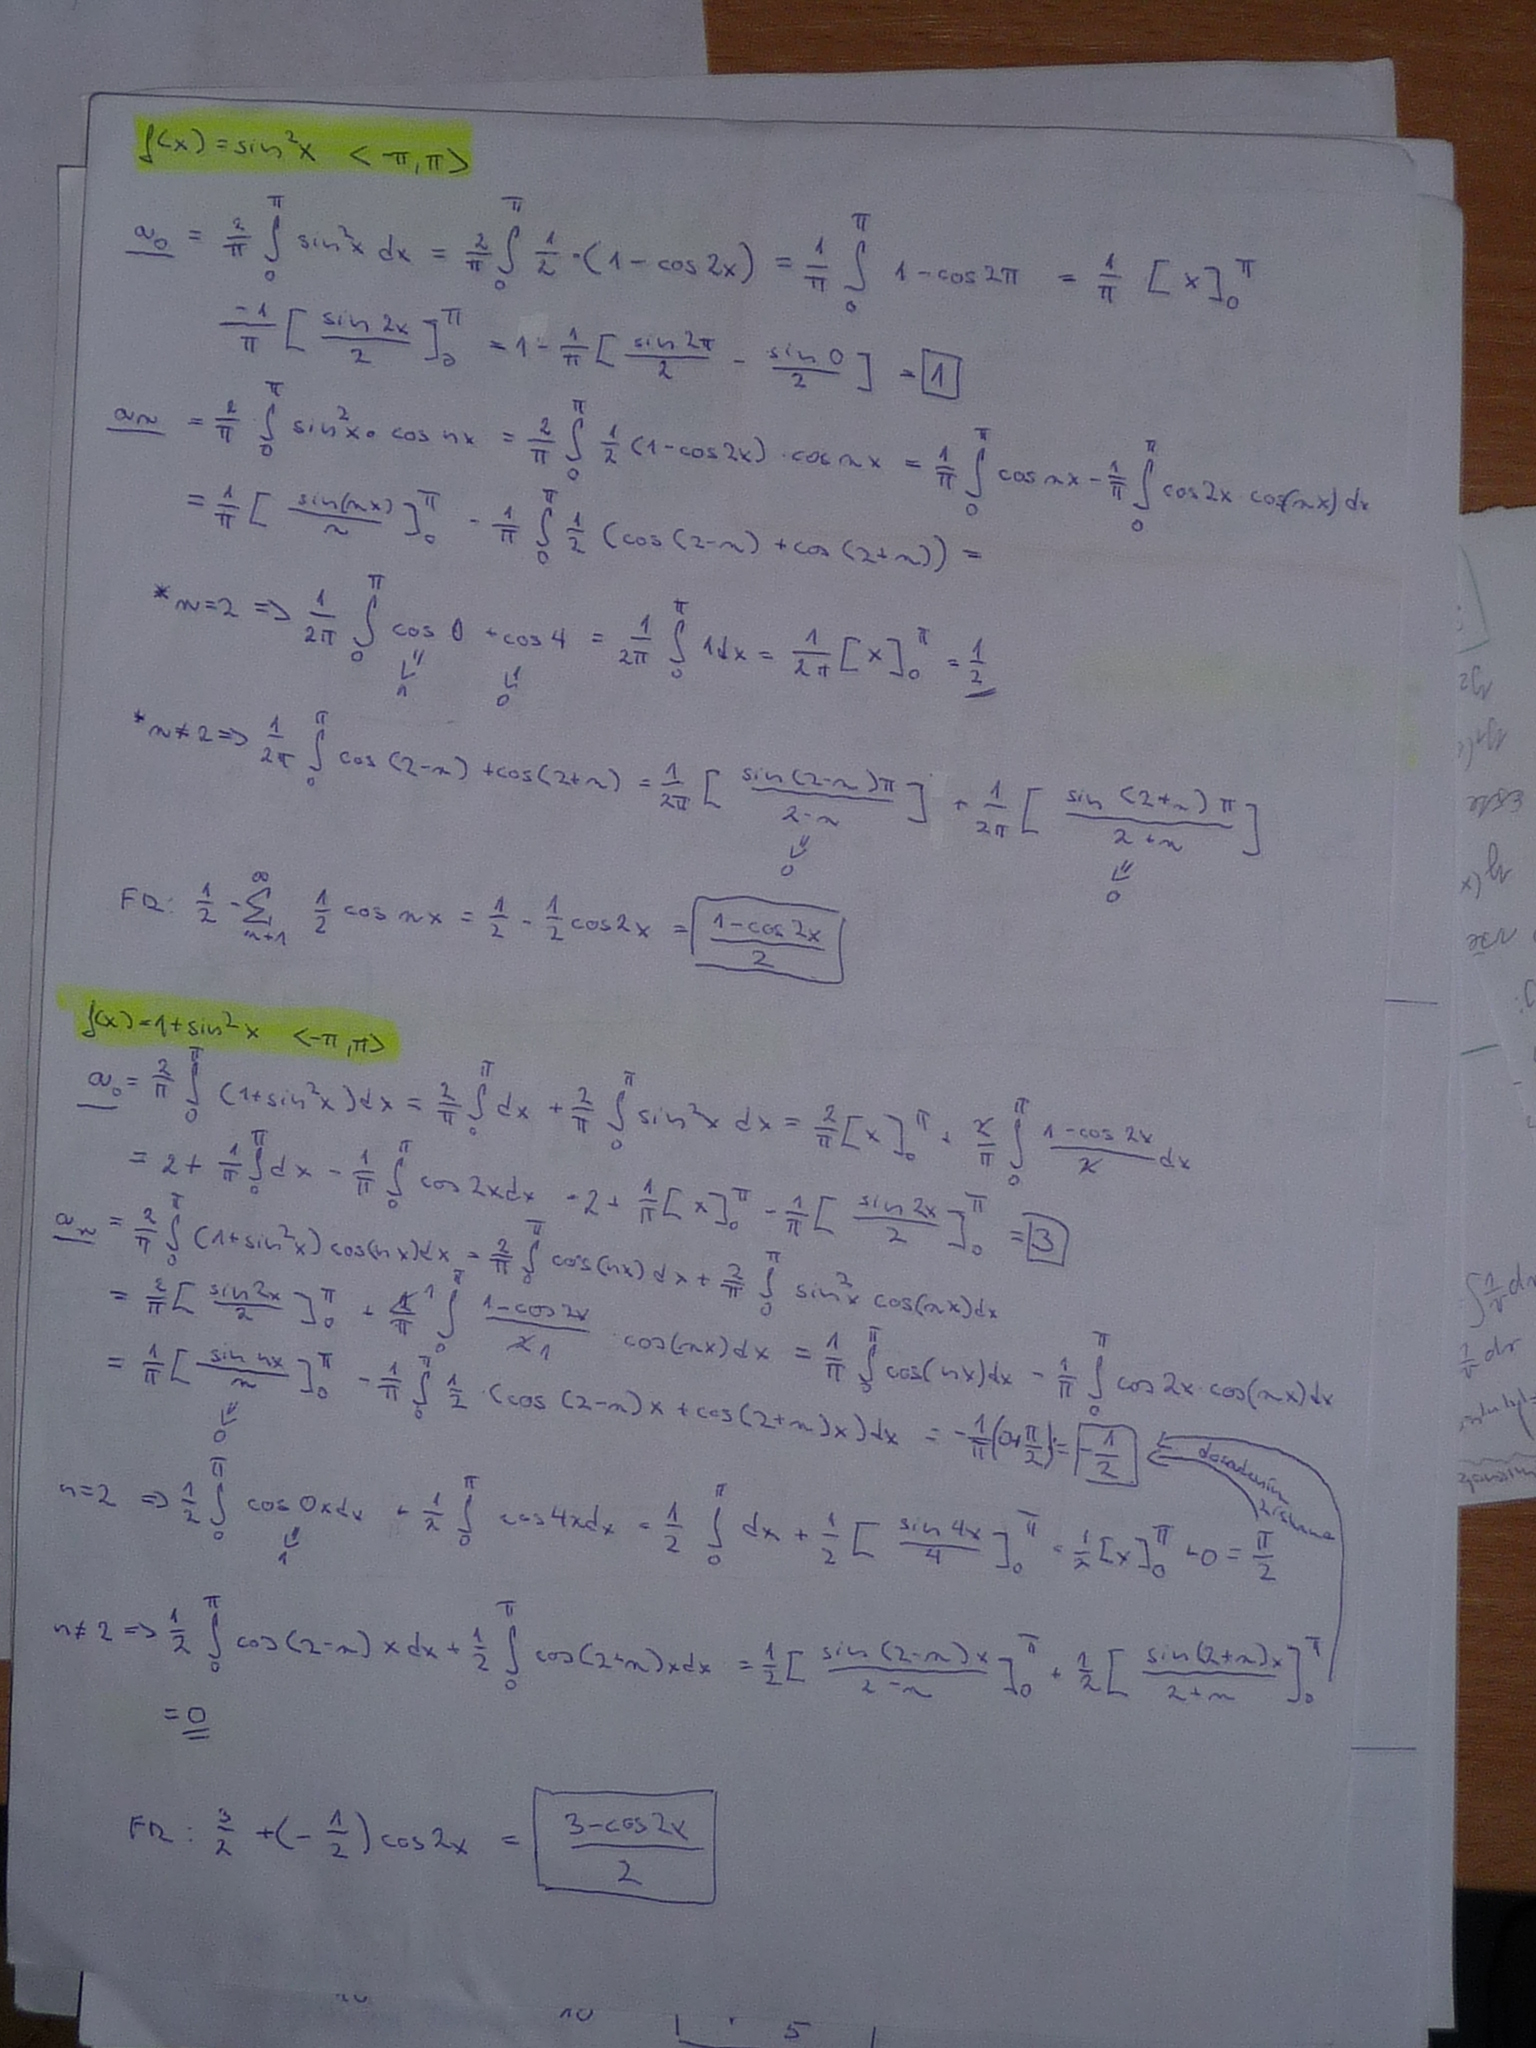 f(x) = sin²x <-π, π>
a₀ = 2/π ∫₀^π sin²x dx = 2/π ∫₀^π 1/2 · (1 - cos2x) = 1/π ∫₀^π 1 - cos2π = 1/π [x]₀^π
-1/π [sin 2x/2]₀^π = 1 - 1/π [sin2π/2 - sin 0/2] = 1
aₙ = 2/π ∫₀^π sin²x · cos nx = 2/π ∫₀^π 1/2 (1 - cos2x) · cos nx = 1/π ∫₀^π cos nx - 1/π ∫₀^π cos2x · cos(nx) dx
= 1/π [sin(nx)/n]₀^π - 1/π ∫₀^π 1/2 (cos(2-n) + cos(2+n)) =
* n=2 => 1/2π ∫₀^π cos 0 + cos 4 = 1/2π ∫₀^π 1dx = 1/2π [x]₀^π = 1/2
1 0
* n≠2 => 1/2π ∫₀^π cos(2-n) + cos(2+n) = 1/2π [sin(2-n)π/2-n] + 1/2π [sin(2+n)π/2+n]
0 0
FR: 1/2 - Σ_{n+1}^∞ 1/2 cos nx = 1/2 - 1/2 cos2x = 1-cos2x/2
f(x) = 1+sin²x <-π, π>
a₀ = 2/π ∫₀^π (1+sin²x)dx = 2/π ∫₀^π dx + 2/π ∫₀^π sin²x dx = 2/π [x]₀^π + 2/π ∫₀^π 1-cos2x/2 dx
= 2 + 1/π ∫₀^π dx - 1/π ∫₀^π cos2xdx = 2 + 1/π [x]₀^π - 1/π [sin2x/2]₀^π = 3
aₙ = 2/π ∫₀^π (1+sin²x) cos(nx)dx = 2/π ∫₀^π cos(nx)dx + 2/π ∫₀^π sin²x cos(nx)dx
= 2/π [sin2x/2]₀^π + 1/π ∫₀^π 1-cos2x/1 · cos(nx)dx = 1/π ∫₀^π cos(nx)dx - 1/π ∫₀^π cos2x · cos(nx)dx
= 1/π [sin nx/n]₀^π - 1/π ∫₀^π 1/2 · (cos(2-n)x + cos(2+n)x)dx = -1/π (0+π/2) = -1/2
0
n=2 => 1/2 ∫₀^π cos 0xdx + 1/2 ∫₀^π cos4xdx = 1/2 ∫₀^π dx + 1/2 [sin4x/4]₀^π = 1/2 [x]₀^π + 0 = π/2
1
n≠2 => 1/2 ∫₀^π cos(2-n)xdx + 1/2 ∫₀^π cos(2+n)xdx = 1/2 [sin(2-n)x/2-n]₀^π + 1/2 [sin(2+n)x/2+n]₀^π
= 0
FR: 3/2 + (-1/2) cos2x = 3-cos2x/2
5